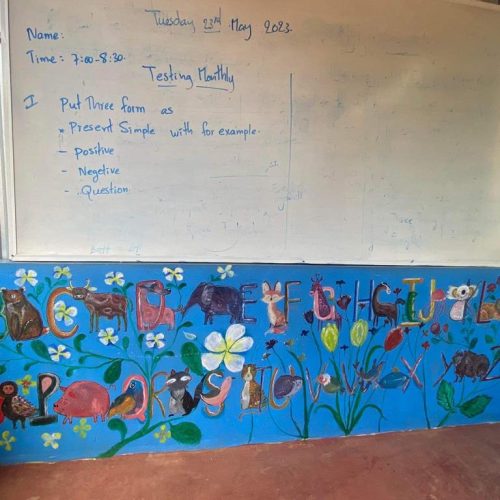 Tuesday 23rd May 2023.
Name:
Time: 7:00-8:30.
Testing Monthly
I Put Three form as
* Present Simple with for example.
- Positive
- Negetive
- Question
C D E F G H I J L
P Q R S T U V W X Y Z